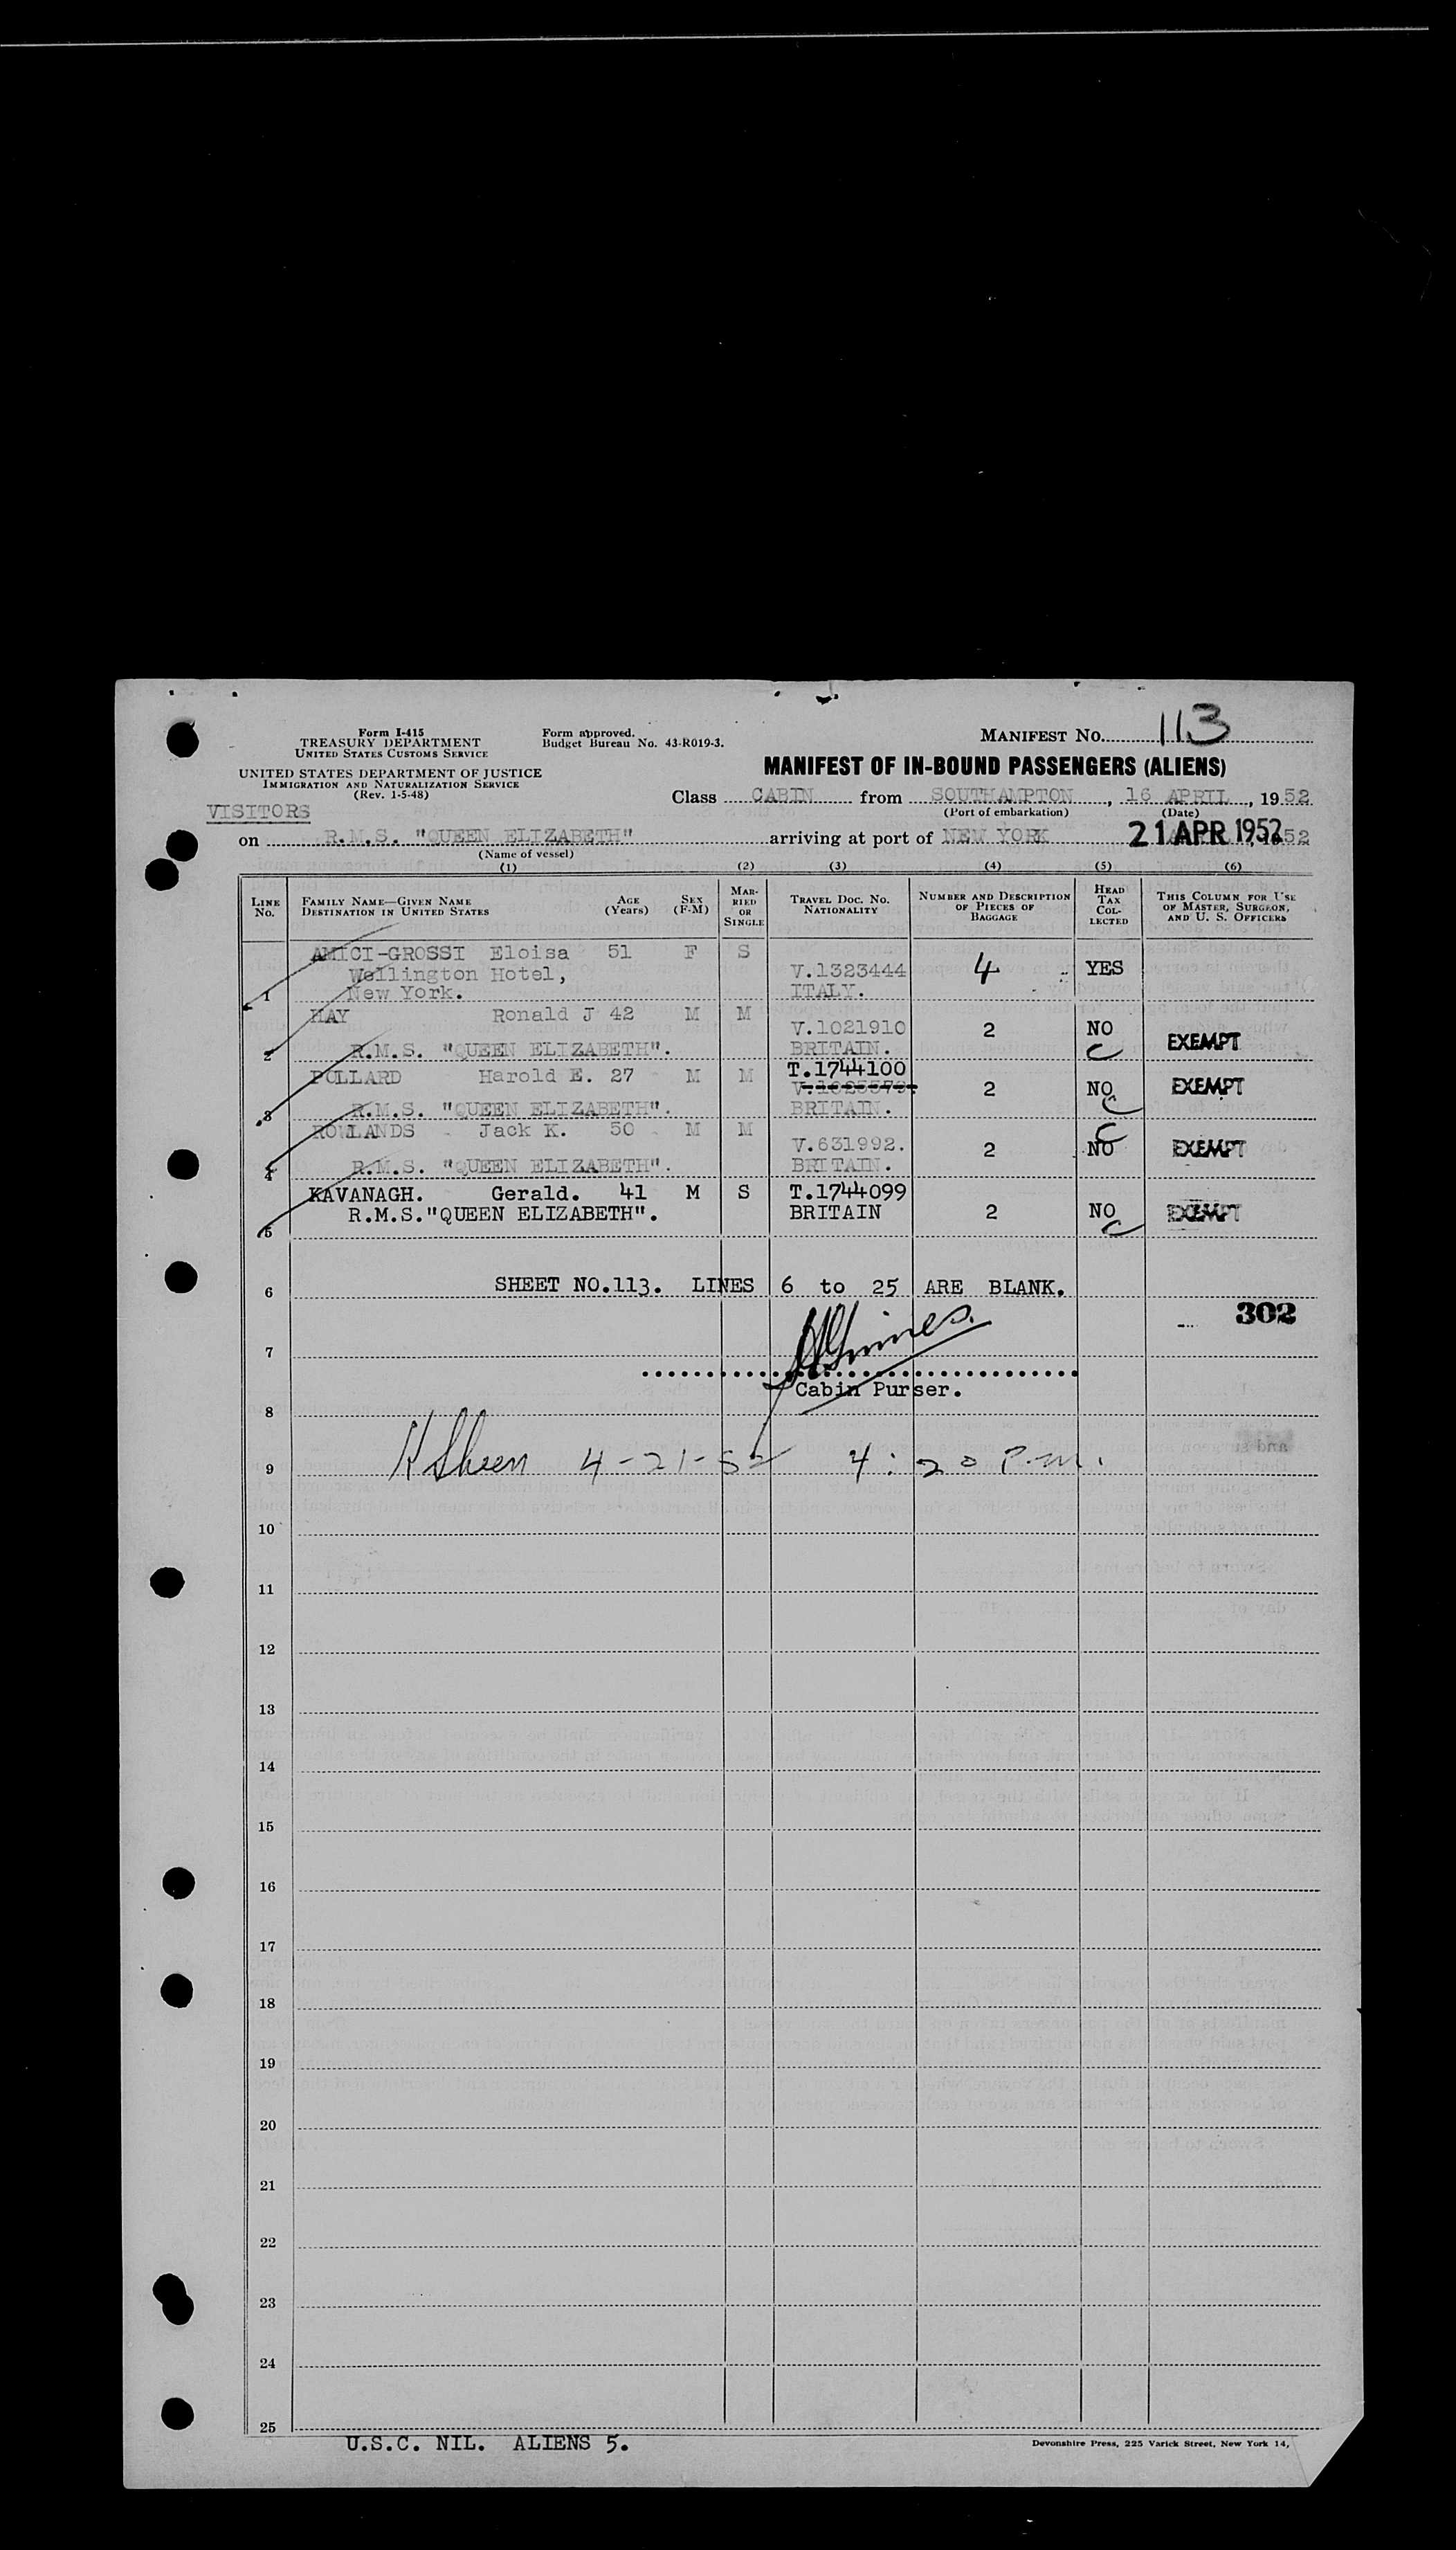 Form I-415
TREASURY DEPARTMENT
UNITED STATES CUSTOMS SERVICE
Form approved.
Budget Bureau No. 43-R019-3.
MANIFEST NO. 113
UNITED STATES DEPARTMENT OF JUSTICE
IMMIGRATION AND NATURALIZATION SERVICE
(Rev. 1-5-48)
MANIFEST OF IN-BOUND PASSENGERS (ALIENS)
VISITORS
Class CABIN from SOUTHAMPTON, 16 APRIL, 1952
(Port of embarkation) (Date)
on R.M.S. "QUEEN ELIZABETH" arriving at port of NEW YORK 21 APR 1952 52
(Name of vessel)
(1) (2) (3) (4) (5) (6)
LINE NO. FAMILY NAME—GIVEN NAME DESTINATION IN UNITED STATES AGE (Years) SEX (F-M) MARRIED OR SINGLE TRAVEL DOC. NO. NATIONALITY NUMBER AND DESCRIPTION OF PIECES OF BAGGAGE HEAD TAX COLLECTED THIS COLUMN FOR USE OF MASTER, SURGEON, AND U. S. OFFICERS
AMICI-GROSSI Eloisa 51 F S
Wellington Hotel, V.1323444 4 YES
1 New York. ITALY.
HAY Ronald J 42 M M
V.1021910 2 NO
2 R.M.S. "QUEEN ELIZABETH". BRITAIN. C EXEMPT
T.1744100
POLLARD Harold E. 27 M M 2 NO EXEMPT
3 R.M.S. "QUEEN ELIZABETH". BRITAIN. C
ROWLANDS Jack K. 50 M M C
V.631992. 2 NO EXEMPT
4 R.M.S. "QUEEN ELIZABETH". BRITAIN.
KAVANAGH. Gerald. 41 M S T.1744099
R.M.S."QUEEN ELIZABETH". BRITAIN 2 NO EXEMPT
5 C
6 SHEET NO.113. LINES 6 to 25 ARE BLANK.
302
7
Cabin Purser.
8
9 4-21-52 4:20 P.m.
10
11
12
13
14
15
16
17
18
19
20
21
22
23
24
25
U.S.C. NIL. ALIENS 5.
Devonshire Press, 225 Varick Street, New York 14,